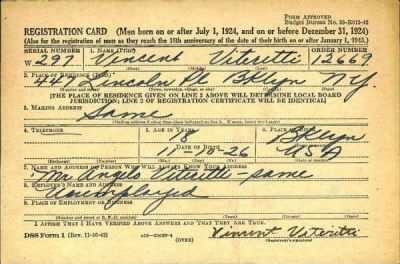 FORM APPROVED
Budget Bureau No. 33-R012-42
REGISTRATION CARD (Men born on or after July 1, 1924, and on or before December 31, 1924)
(Also for the registration of men as they reach the 18th anniversary of the date of their birth on or after January 1, 1943.)
SERIAL NUMBER 1. NAME (Print) ORDER NUMBER
W 297 Vincent Viteretti 12669
2. PLACE OF RESIDENCE (Print)
Lincoln Pl Bklyn N.Y.
[THE PLACE OF RESIDENCE GIVEN ON LINE 2 ABOVE WILL DETERMINE LOCAL BOARD
JURISDICTION; LINE 2 OF REGISTRATION CERTIFICATE WILL BE IDENTICAL]
3. MAILING ADDRESS
Same
4. TELEPHONE 5. AGE IN YEARS 6. PLACE OF BIRTH
18 Bklyn
DATE OF BIRTH
26
7. NAME AND ADDRESS OF PERSON WHO WILL ALWAYS KNOW YOUR ADDRESS
Mr Angelo Viteretti - same
8. EMPLOYER'S NAME AND ADDRESS
Unemployed
9. PLACE OF EMPLOYMENT OR BUSINESS
I AFFIRM THAT I HAVE VERIFIED ABOVE ANSWERS AND THAT THEY ARE TRUE.
DSS Form 1 (Rev. 11-16-42) (OVER) Vincent Viteretti
(Registrant's signature)